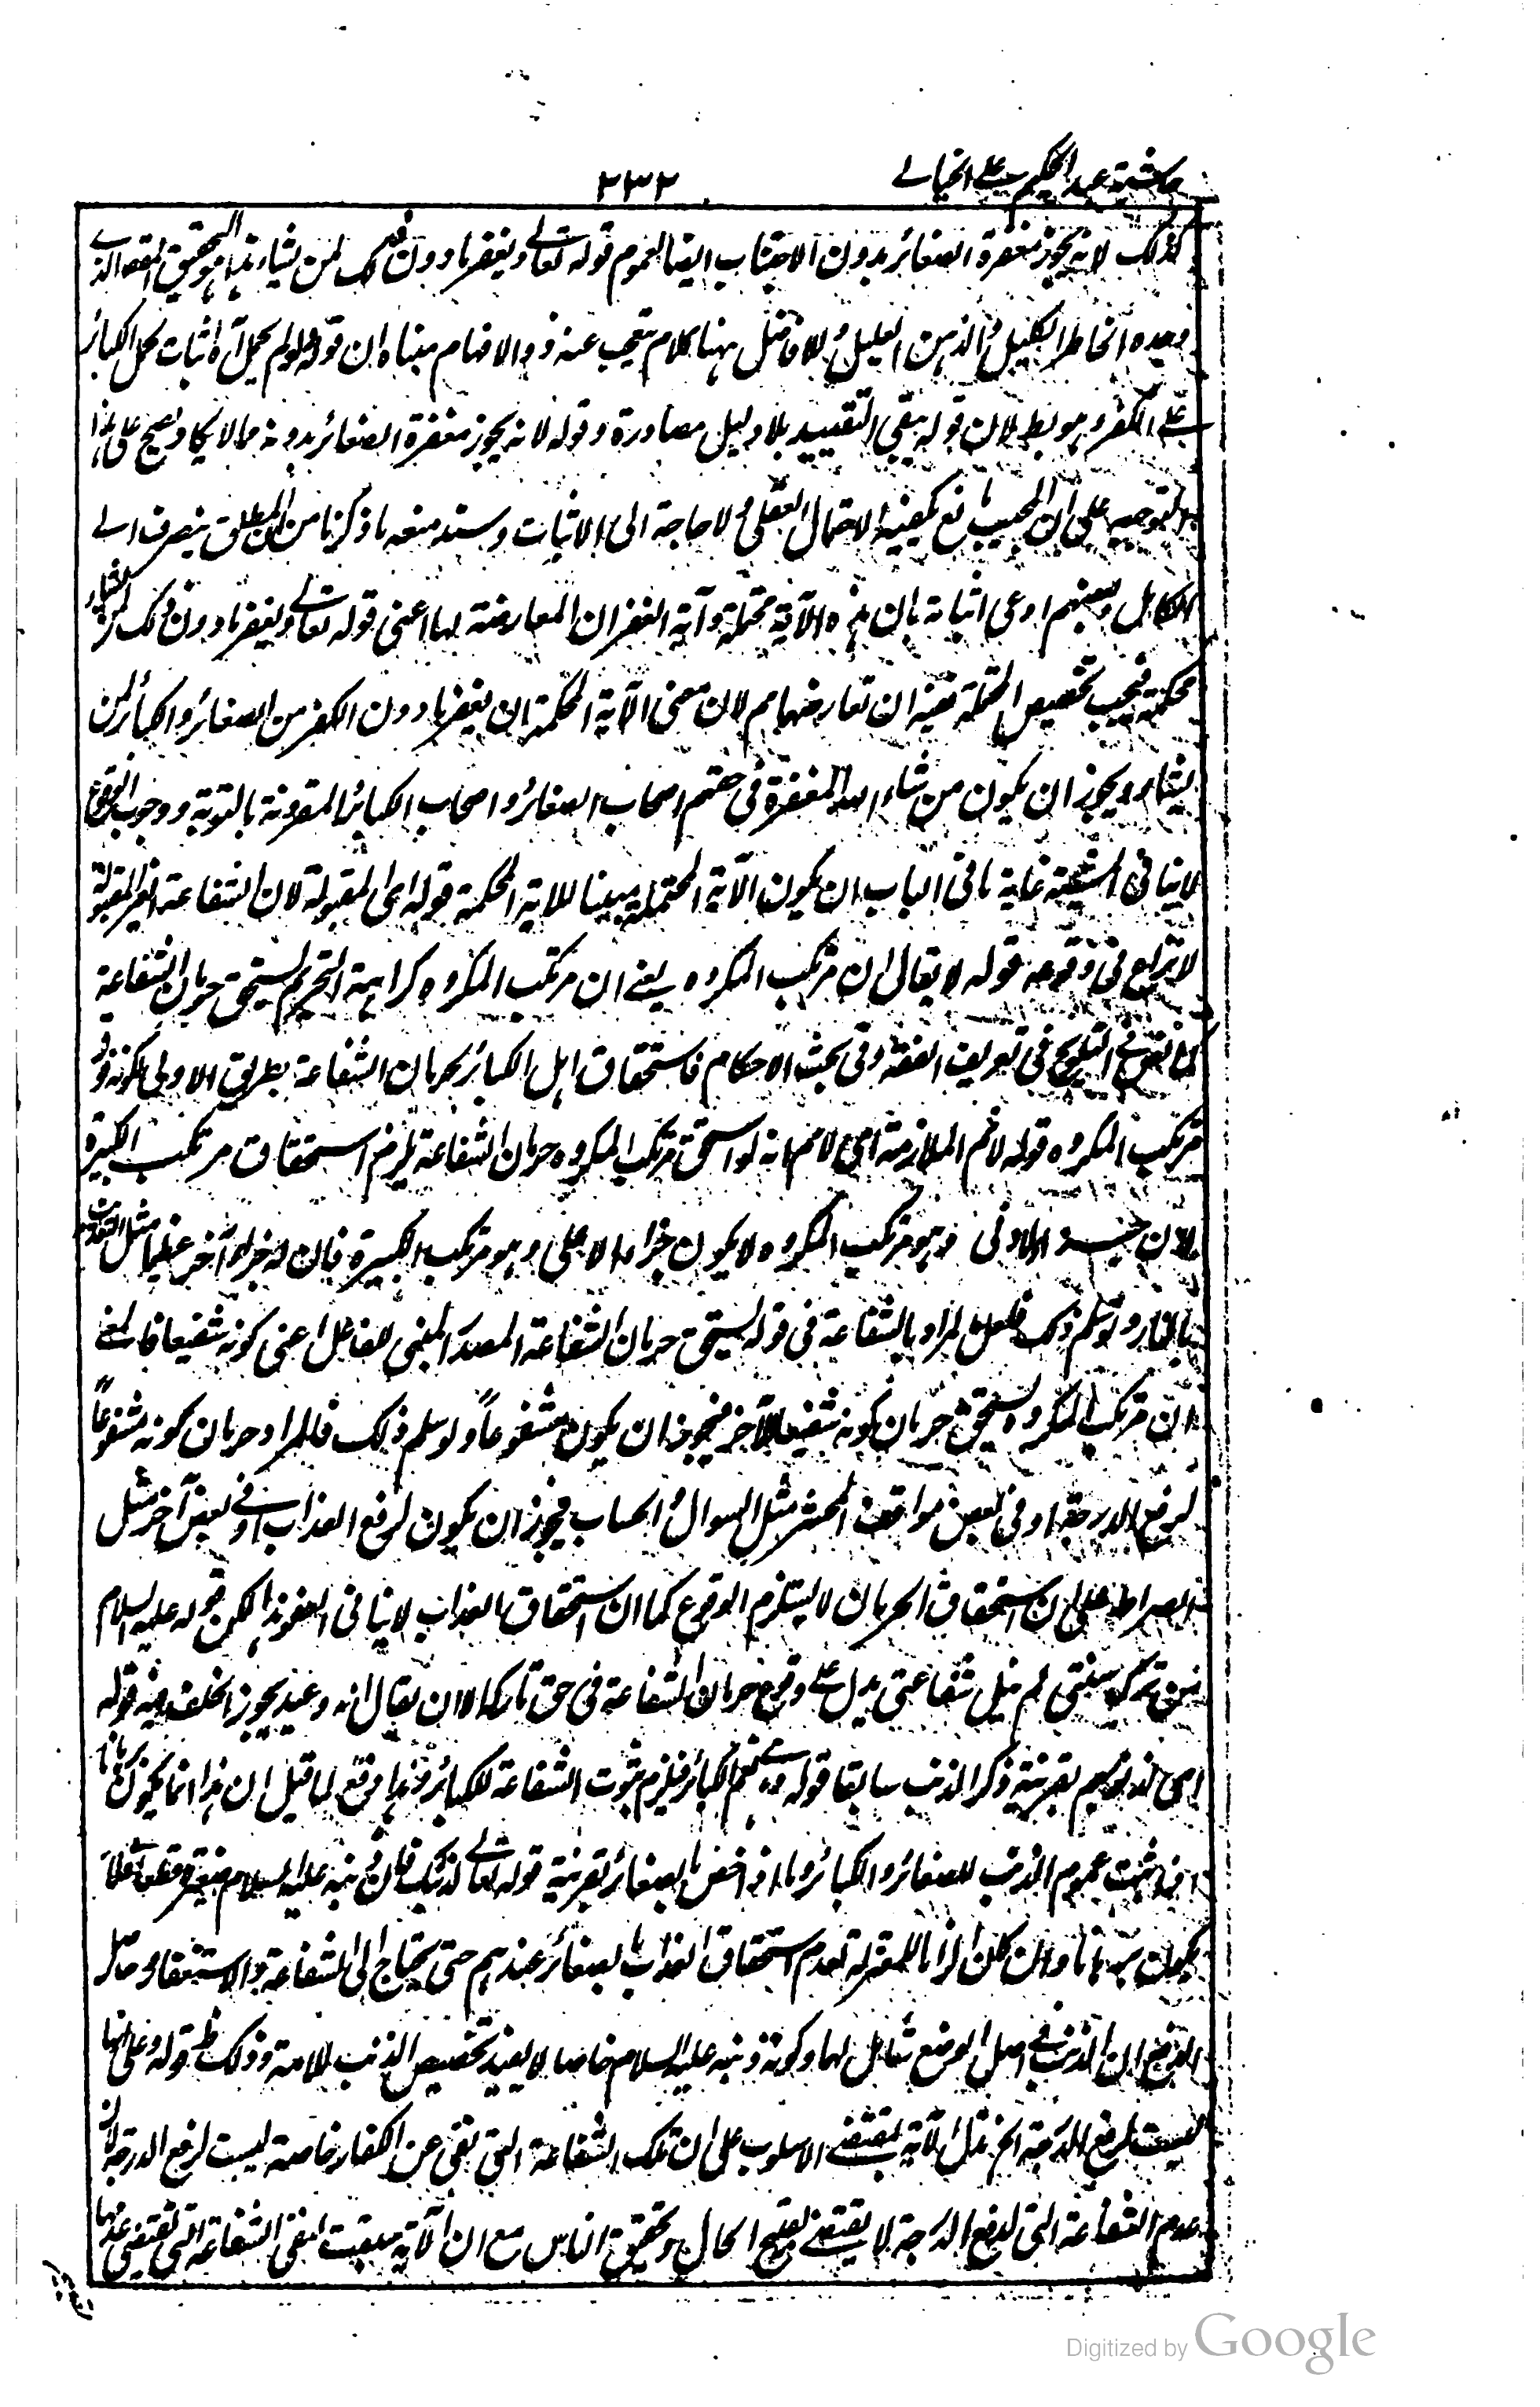 حاشية عبد الحكيم على الخيالي
٢٣٢
كذلك لانه يجوز مغفرة الصغائر بدون الاجتناب ايضا لعموم قوله تعالى ويغفر ما دون ذلك لمن يشاء هذا هو تحقيق المقصد الذي
وجده الخاطر الكليل والذهن العليل وللافاضل ههنا كلام يتعجب عنه ذوو الافهام مبناه ان قوله ولو لم يحمل آه اثبات لحمل الكبائر
على الكفر وهو بط لان قوله يبقى التقييد بلا دليل مصادرة وقوله لانه يجوز مغفرة الصغائر بدونه مما لا يكاد يصح على هذا
التوجيه على ان المجيب مانع يكفيه الاحتمال العقلي ولا حاجة الى الاثبات وسند منعه ما ذكرنا من ان المطلق ينصرف الى
الكامل وبعضهم ادعى اثباته بان هذه الآية محتملة وآية الغفران المعارضة لها اعنى قوله تعالى ويغفر ما دون ذلك لمن يشاء
محكمة فيجب تخصيص المحتملة ففيه ان تعارضهما مم لان معنى الآية المحكمة ان يغفر ما دون الكفر من الصغائر والكبائر لمن
يشاء ويجوز ان يكون من شاء الله المغفرة في حقهم اصحاب الصغائر واصحاب الكبائر المقرونة بالتوبة ووجوب الوقوع
لا ينافي المشيئة غاية ما في الباب ان يكون الآية المحتملة مبينا للاية المحكمة قوله اى المقبولة لان الشفاعة الغير المقبولة
لا نزاع في وقوعه قوله لا يقال ان مرتكب المكروه يعنى ان مرتكب المكروه كراهية التحريم يستحق حرمان الشفاعة
كما نص في التلويح في تعريف الفقه وفى بحث الاحكام فاستحقاق اهل الكبائر بحرمان الشفاعة بطريق الاولى لكونه فوق
مرتكب المكروه قوله لانم الملازمة اى لانم انه لو استحق مرتكب المكروه حرمان الشفاعة يلزم استحقاق مرتكب الكبيرة
لان جزاء الادنى وهو مرتكب المكروه لا يكون جزاء الاعلى وهو مرتكب الكبيرة فان له جزاء آخر عظيما مثل التعذيب
بالنار ولو سلم ذلك فلعل المراد بالشفاعة في قوله يستحق حرمان الشفاعة المصدر المبنى للفاعل اعنى كونه شفيعا فالمعنى
ان مرتكب المكروه يستحق حرمان كونه شفيعا لآخر فيجوز ان يكون مشفوعاً ولو سلم ذلك فالمراد حرمان كونه مشفوعاً
لرفع الدرجة او فى بعض مواقف الحشر مثل السوال والحساب فيجوز ان يكون لرفع العذاب او فى بعض آخر مثل
الصراط على ان استحقاق الحرمان لا يستلزم الوقوع كما ان استحقاق العذاب لا ينافى العفو هذا لكن قوله عليه السلام
من ترك سنتى لم ينل شفاعتى يدل على وقوع حرمان الشفاعة فى حق تاركها الا ان يقال انه وعيد يجوز الخلف فيه قوله
اى لذنوبهم بقرينة ذكر الذنب سابقا قوله وهى تعم الكبائر فيلزم ثبوت الشفاعة للكبائر وهذا دفع لما قيل ان هذا انما يكون برهانا
اذا ثبت عموم الذنب للصغائر والكبائر واما اذا خص بالصغائر بقرينة قوله تعالى لذنبك فان ذنبه عليه السلام صغيرة قطعا فلا
يكون برهانا وان كان الزاما للمعتزلة لعدم استحقاق العذاب بالصغائر عندهم حتى يحتاج الى الشفاعة والاستغفار وحاصل
الدفع ان الذنب فى اصل الوضع شامل لهما وكونه ذنبه عليه السلام خاصا لا يفيد تخصيص الذنب للامة وذلك ظ قوله وعلى انها
ليست لرفع الدرجة الخ تدل الآية بمقتضى الاسلوب على ان تلك الشفاعة التى نفى عن الكفار خاصة ليست لرفع الدرجة لان
عدم الشفاعة التى لرفع الدرجة لا يقتضى تقبيح الحال وتحقيق الياس مع ان الآية سيقت لنفى الشفاعة التى تقتضى عدمها
Digitized by Google